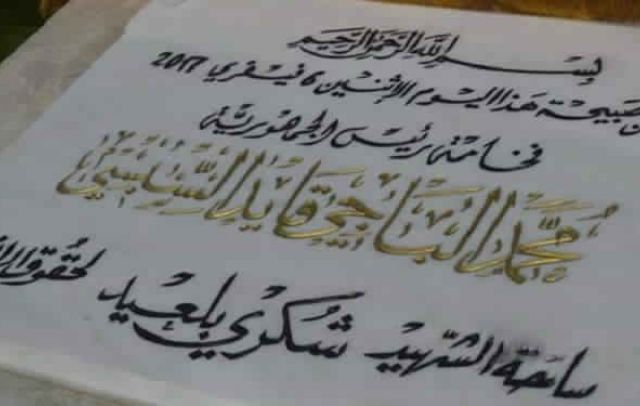 بسم الله الرحمن الرحيم
صبيحة هذا اليوم الإثنين 6 فيفري 2017
فخامة رئيس الجمهورية
محمد الباجي قايد السبسي
ساحة الشهيد شكري بلعيد لحقوق